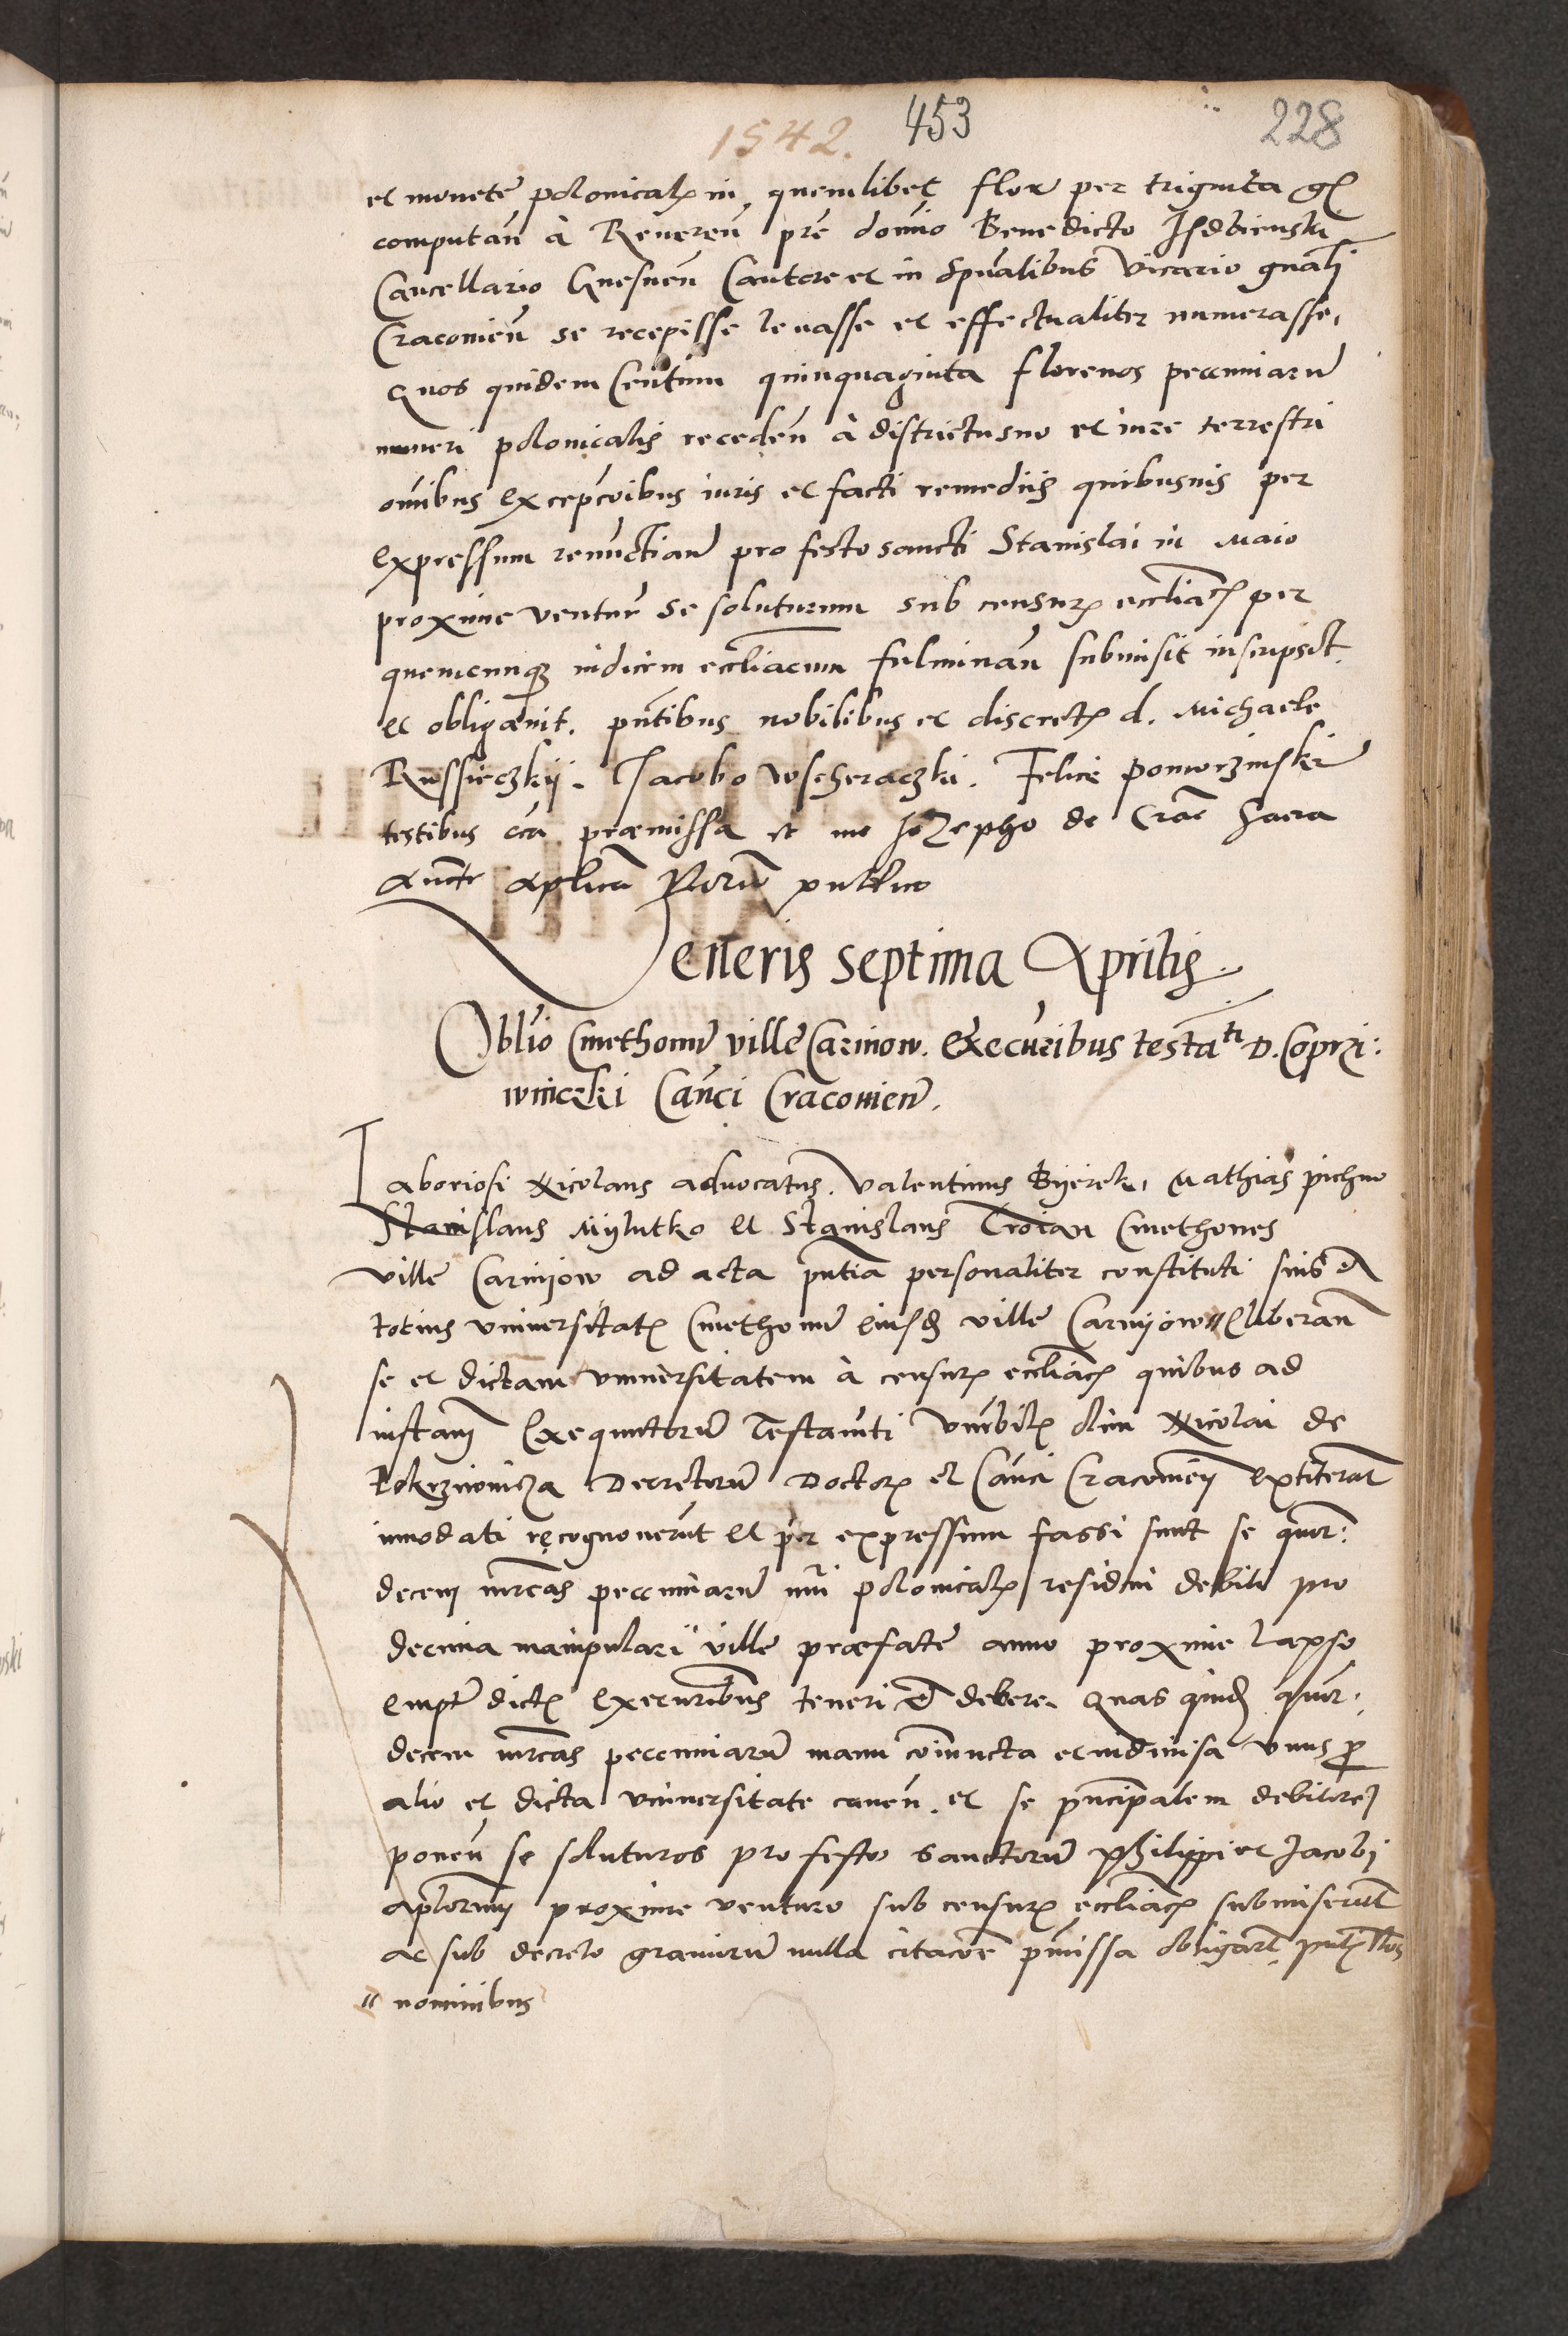 1542. 453 228
et monete polonicalꝭ in quemlibet flor per triginta gꝭ
computan̄ à Reueren̄ pr̄e domı̄o Benedicto Isdbiensky
Cancellario Gnesnen̄ Cantore et in Spūalibus Vicario gn̄ali
Cracouien̄ se recepisse leuasse et effectualiter numerasse,
Quos quidem Centum quinquaginta florenos pecuniarū
numeri polonicalis receden̄ à districtu suo et iure terrestri
om̄ibus excepc̄oibus iuris et facti remediis quibusuis per
expressum renūctian̄ pro festo sancti Stanislai in Maio
proxime ventur̄ se soluturum sub censurꝭ eccl̄iacꝭ per
quemcunqꝫ iudicem eccl̄iacum fulminan̄ submisit inscripsit
et obligauit. pn̄tibus nobilibus et discretꝭ d. Michaele
Russieczkÿ. Jacobo Wscheraczki. Felice pomorzinski
testibus cc̄a præmissa et me Jozepho de Crac̄ sacra
auctē aplica Notar̄ publico
Veneris septima Aprilis.
Obl̄io Cmethonū ville Carniow. Execut̄ribus testa^ti D. Coprzi:
wniczki Can̄ci Cracouien̄.
Laboriosi Nicolaus aduocatus. Valentinus Bÿerek, Mathias pichno
Stanislaus Mÿlutko et Stanislaus Troian Cmethones
ville Carnijow ad acta pn̄tia personaliter constituti suis et
totius vniuersitatꝭ Cmethonū eiusdꝫ ville Carnijow // Cliberan̄
se et dictam vniuersitatem à censurꝭ eccl̄iacꝭ quibus ad
instan̄ Exequutorū Testam̄ti Vn̄rbilꝭ olim Nicolai de
Decretorū Doctorꝭ et Can̄ci Cracouien̄ extiterant
innodati recognouerūt et per expressum fassi sunt se quor:
decem mr̄cas pecuniarū nu̅i polonicalꝭ residui debiti pro
decima manipulari ville præfate anno proxime lapso
empt̄ dictꝭ execut̄ribus teneri et debere. Quas quidꝫ quor:
decem mr̄cas pecuniarū manu coiuncta et indiuisa vnus ꝓ
alio et dicta vniuersitate cauen̄. et se principalem debitorē
ponen̄ se soluturos pro festo Sanctorū Philippi et Jacobi
aplorum proxime venturo sub censurꝭ eccl̄iacꝭ submiserūt
ac sub decreto grauiorū nulla citac̄oe pm̄issa obligarūt
// nominibus